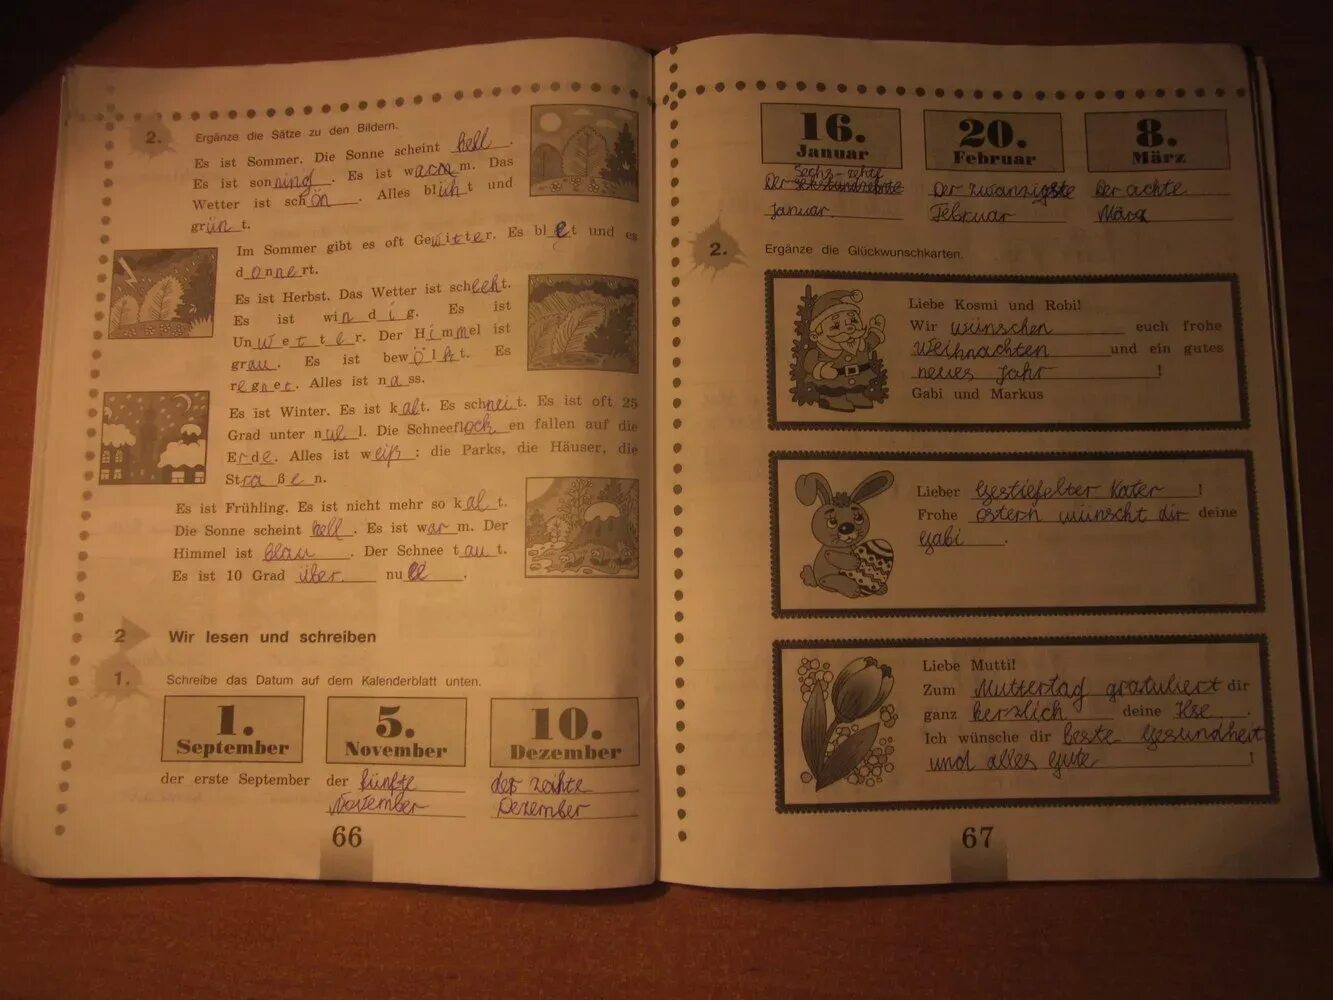 2. Ergänze die Sätze zu den Bildern.
Es ist Sommer. Die Sonne scheint hell.
Es ist sonning. Es ist warm m. Das
Wetter ist schön. Alles blüht und
grün t.
Im Sommer gibt es oft Gewitter. Es blet und es
donnert.
Es ist Herbst. Das Wetter ist schleht.
Es ist windig. Es ist
Unwetter. Der Himmel ist
grau. Es ist bewölkt. Es
regnet. Alles ist nass.
Es ist Winter. Es ist kalt. Es schneit. Es ist oft 25
Grad unter null. Die Schneeflocken fallen auf die
Erde. Alles ist weiß: die Parks, die Häuser, die
Straßen.
Es ist Frühling. Es ist nicht mehr so kalt.
Die Sonne scheint hell. Es ist warm. Der
Himmel ist blau. Der Schnee taut.
Es ist 10 Grad über null.
2 Wir lesen und schreiben
1. Schreibe das Datum auf dem Kalenderblatt unten.
1. September
5. November
10. Dezember
der erste September
der fünfte November
der zehte Dezember
66
16. Januar
20. Februar
8. März
Sechs-zehte
Der Januar
Der zwanzigste Februar
Der achte März
2. Ergänze die Glückwunschkarten.
Liebe Kosmi und Robi!
Wir wünschen euch frohe
weihnachten und ein gutes
neues Jahr!
Gabi und Markus
Lieber Gestiefelter Kater!
Frohe ostern wünscht dir deine
Gabi.
Liebe Mutti!
Zum Muttertag gratuliert dir
ganz herzlich deine Ilse.
Ich wünsche dir beste Gesundheit
und alles Gute!
67